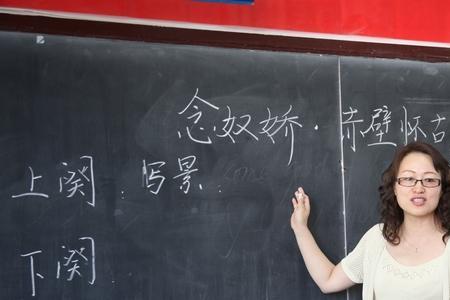 念奴娇·赤壁怀古
上阕:写景
下阕